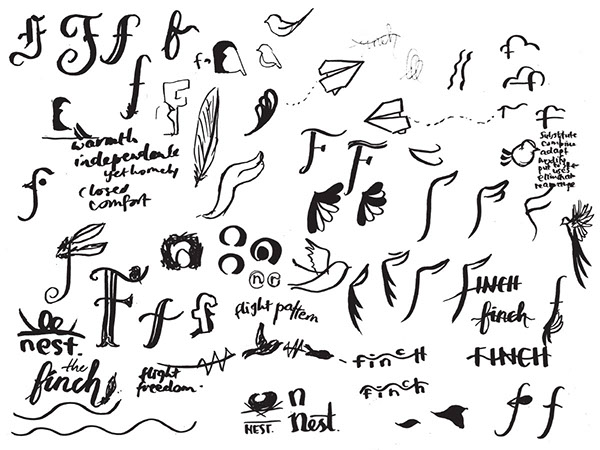 F F f f
f
finch
f
F
warmth
independence
yet homely
closed
comfort
F F
substitute
combine
adapt
modify
put to other
uses
eliminate
rearrange
f
n r
f
F f f
flight pattern
FINCH
finch
nest.
the
finch
flight
freedom.
finch
finch
FINCH
NEST.
n
nest.
f f